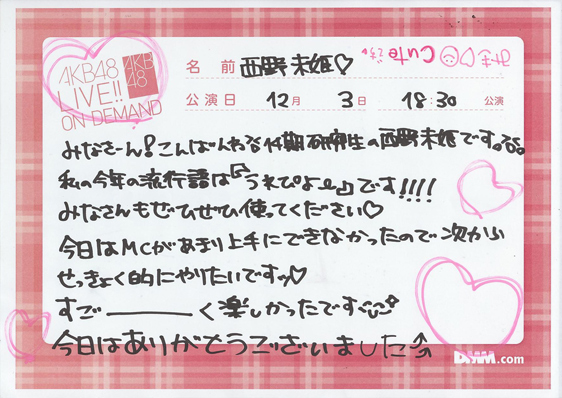 AKB48
LIVE!!
ON DEMAND
AKB
48
名前 西野未姫♡
みき♡☺♡ Cuteです。
公演日 12月 3日 18:30 公演
みなさーん!こんばんわぁ🎶14期研究生の西野未姫です。
私の今年の流行語は「うれぴよ〜」です!!!!
みなさんもぜひぜひ使ってください♡
今日はMCがあまり上手にできなかったので次から
せっきょく的にやりたいですッ♡
すご————く楽しかったです
今日はありがとうございました
DMM.com